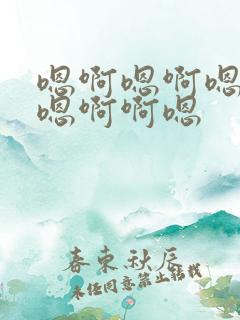 嗯啊嗯啊嗯
嗯啊啊嗯
春束秋辰
未经同意禁止转载